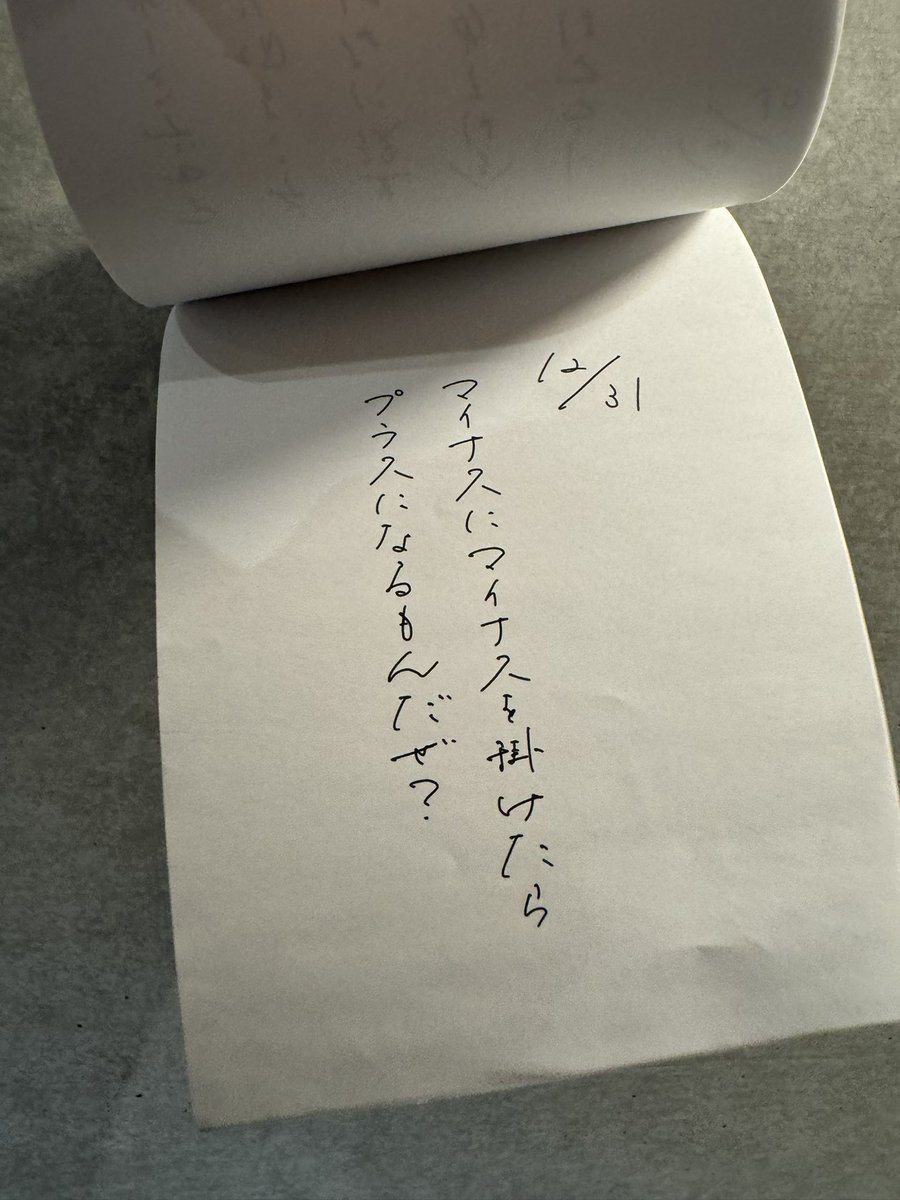 12/31
マイナスにマイナスを掛けたら
プラスになるもんだぜ？